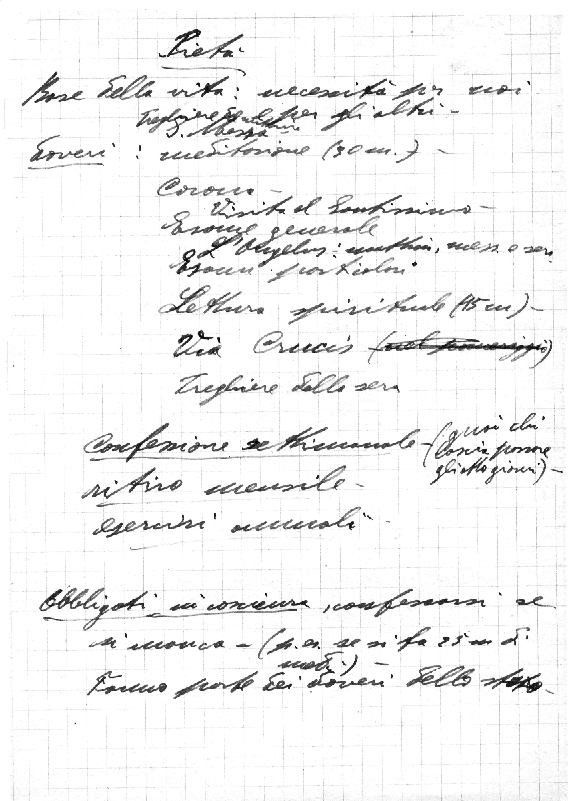 Pietà
Base della vita: necessità per noi
per gli altri -
Preghiere del mattino
S. Messa
doveri: meditazione (30 m.) -
Corona -
Visita al Santissimo -
Esame generale
L'Angelus: mattin, mezz. e sera
Esami particolari
Lettura spirituale (15 m) -
Via Crucis (nel pomeriggio)
Preghiere della sera
Confessione settimanale - (guai chi
lascia passare
gli otto giorni) -
ritiro mensile -
esercizi annuali -
Obbligati in coscienza, confessarsi se
si manca - (p. es. se si fa 25 m di
med.) -
Fanno parte dei doveri dello stato -